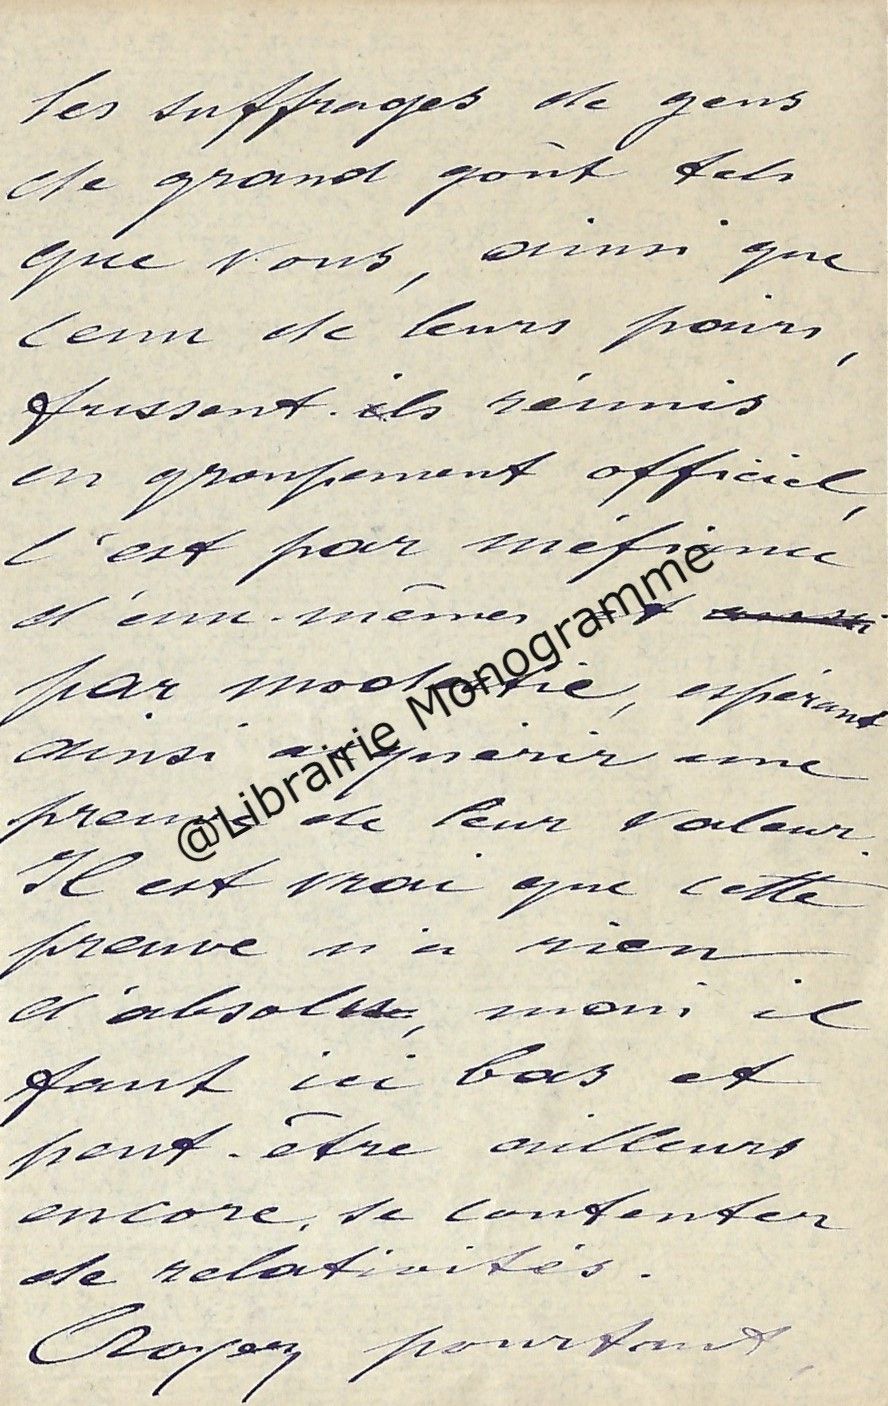 les suffrages de gens
de grand goût tels
que vous, ainsi que
ceux de leurs pairs,
fussent-ils réunis
en groupement officiel,
c'est par méfiance
d'eux-mêmes et aussi
par modestie, espérant
ainsi acquérir une
preuve de leur valeur.
Il est vrai que cette
preuve n'a rien
d'absolu, mais il
faut ici bas et
peut-être ailleurs
encore, se contenter
de relativités.
Croyez pourtant,
@Librairie Monogramme